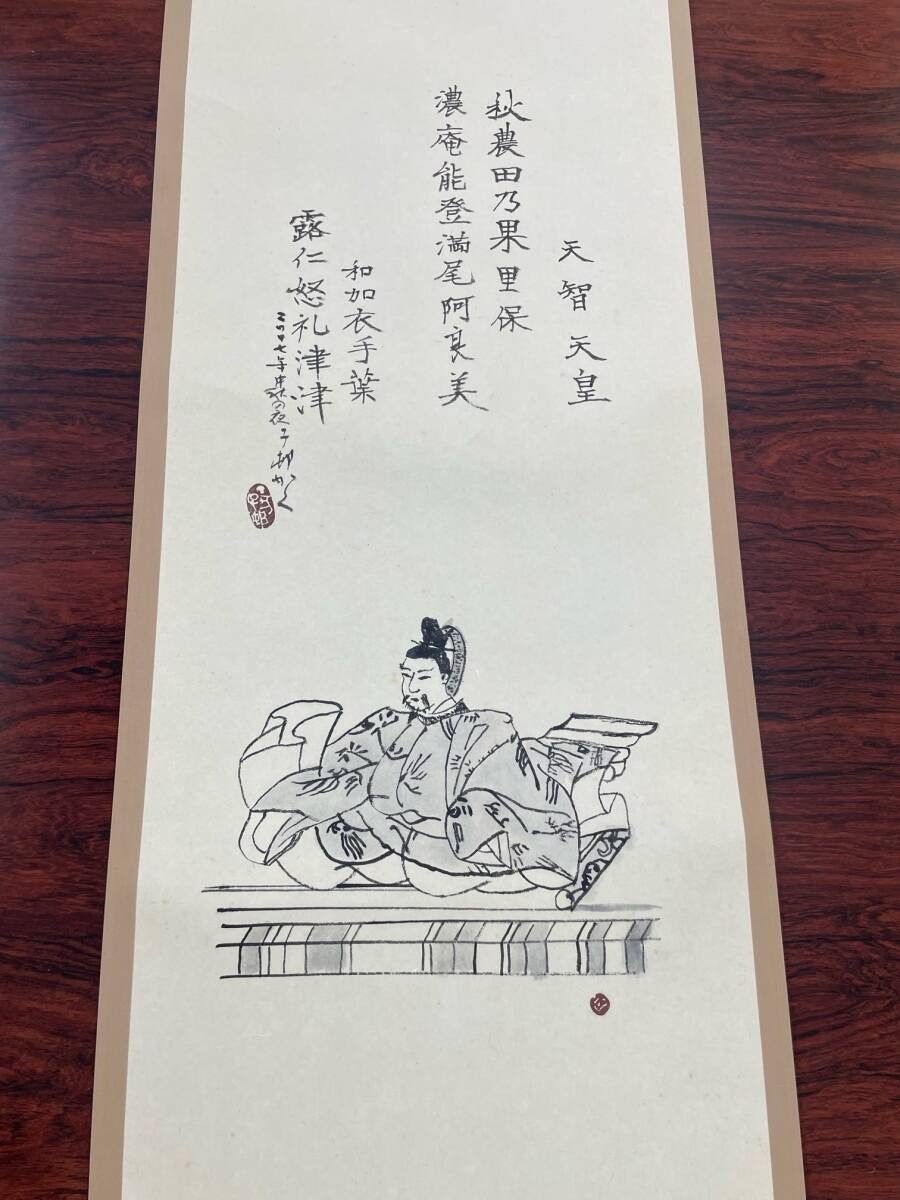 天智天皇
秋農田乃果里保
濃庵能登満尾阿良美
和加衣手葉
露仁怒礼津津